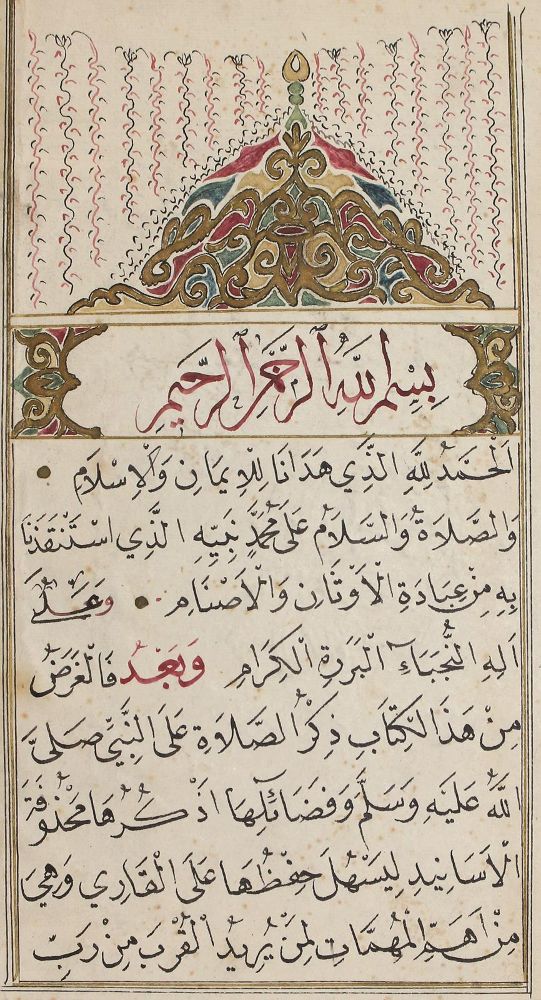 بِسْمِ اللَّهِ الرَّحْمٰنِ الرَّحِيمِ
اَلْحَمْدُ لِلَّهِ الَّذِي هَدَانَا لِلْإِيمَانِ وَالْإِسْلَامِ
وَالصَّلَاةُ وَالسَّلَامُ عَلَى مُحَمَّدٍ نَبِيِّهِ الَّذِي اسْتَنْقَذَنَا
بِهِ مِنْ عِبَادَةِ الْأَوْثَانِ وَالْأَصْنَامِ وَعَلَى
اٰلِهِ النُّجَبَاءِ الْبَرَرَةِ الْكِرَامِ وَبَعْدُ فَالْغَرَضُ
مِنْ هَذَا الْكِتَابِ ذِكْرُ الصَّلَاةِ عَلَى النَّبِيِّ صَلَّى
اللَّهُ عَلَيْهِ وَسَلَّمَ وَفَضَائِلِهَا اَذْكُرُهَا مَحْذُوفَةَ
الْأَسَانِيدِ لِيَسْهُلَ حِفْظُهَا عَلَى الْقَارِي وَهِيَ
مِنْ اَهَمِّ الْمُهِمَّاتِ لِمَنْ يُرِيدُ الْقُرْبَ مِنْ رَبِّ